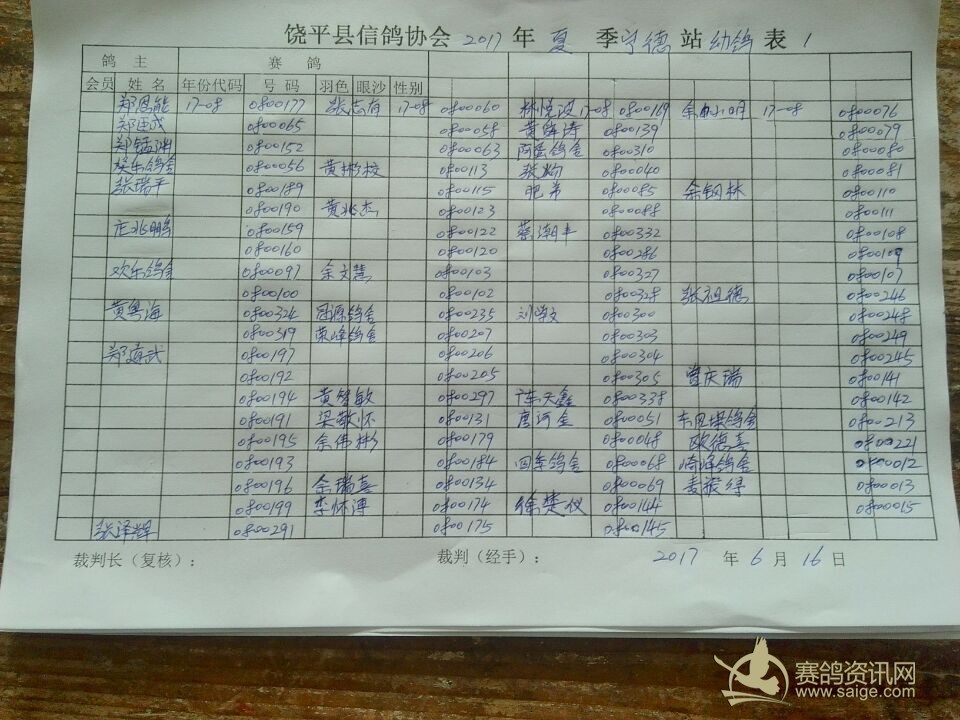 饶平县信鸽协会 2017 年 夏 季 宁德 站 幼鸽 表 1
鸽 主 赛 鸽
会员 姓 名 年份代码 号 码 羽色 眼沙 性别
郑恩能 17-08 0800177 张志有 17-08 0800060 17-08 0800119 余 明 17-08 0800076
0800065 0800058 0800139 0800079
0800152 0800063 阿 鸽舍 0800310 0800080
乐鸽舍 0800056 黄彬校 0800113 0800040 0800081
张瑞平 0800189 0800115 肥弟 0800085 余钢林 0800110
0800190 黄兆杰 0800123 0800088 0800111
庄兆鹏 0800159 0800122 蔡潮丰 0800332 0800108
0800160 0800120 0800286 0800109
欢乐鸽舍 0800097 余文慧 0800103 0800327 0800107
0800100 0800102 0800328 张祖德 0800246
黄粤海 0800324 源鸽舍 0800235 刘 文 0800300 0800248
0800319 荣峰鸽舍 0800207 0800303 0800249
郑 武 0800197 0800206 0800304 0800245
0800192 0800205 0800305 曾庆瑞 0800141
0800194 黄 敏 0800297 陈天鑫 0800338 0800142
0800191 梁敬怀 0800131 0800051 鸽舍 0800213
0800195 余伟彬 0800179 0800048 欧德喜 0800221
0800193 0800184 鸽舍 0800068 峰鸽舍 0800012
0800196 余瑞喜 0800134 0800069 0800013
0800199 李怀 0800174 徐楚仪 0800144 0800015
张泽辉 0800291 0800175 0800145
裁判长（复核）： 裁判（经手）： 2017 年 6 月 16 日
赛鸽资讯网
www.saige.com